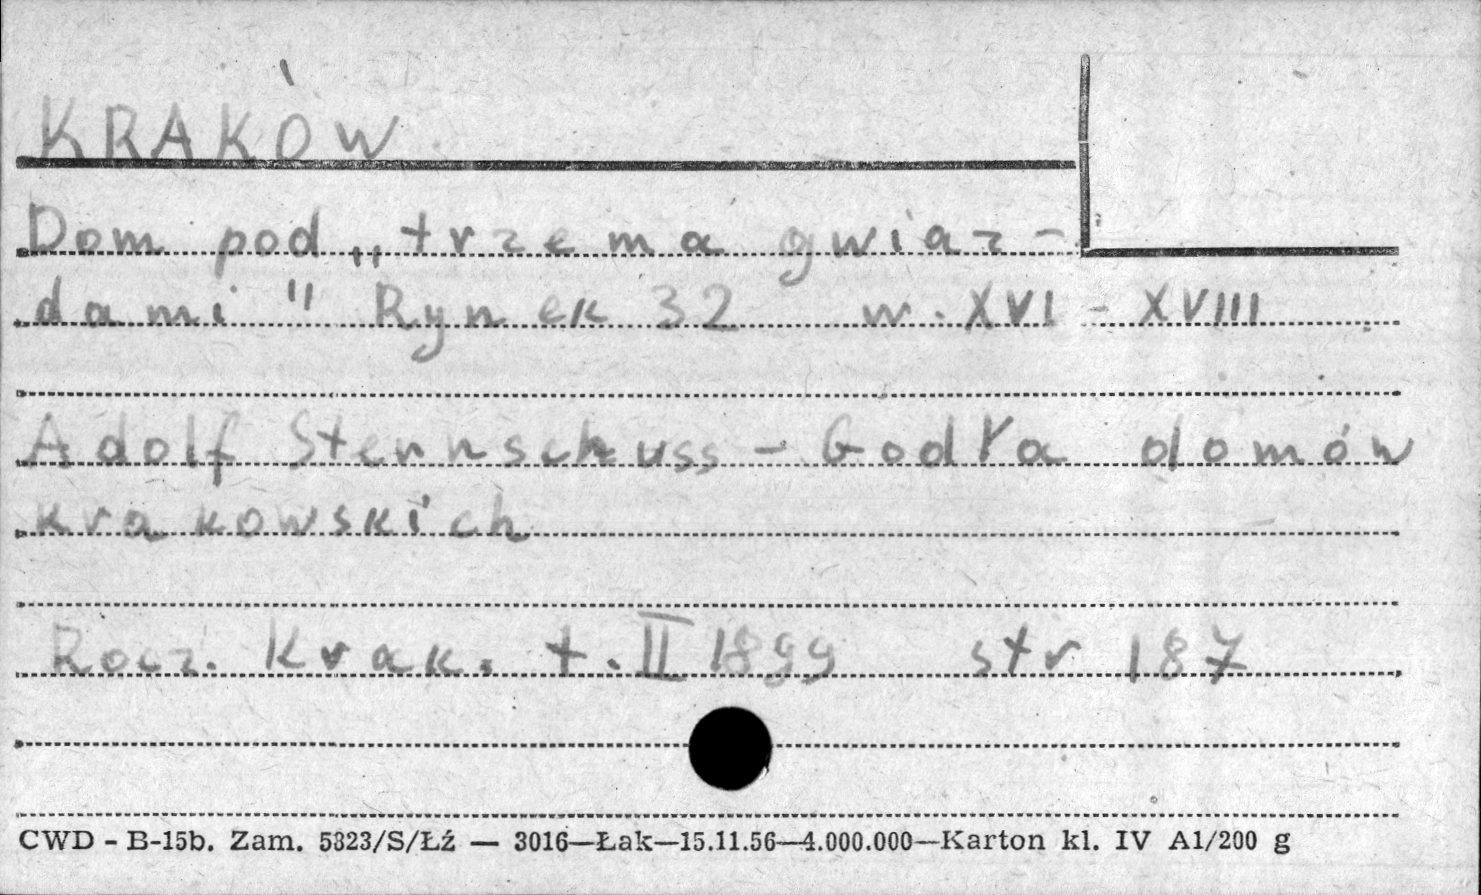 KRAKÓW
Dom pod „trzema gwiaz-
dami" Rynek 32 w. XVI - XVIII
Adolf Sternschuss - Godła domów
krakowskich
Rocz. Krak. t. II 1899 str 187
CWD - B-15b. Zam. 5323/S/Łź — 3016—Łak—15.11.56—4.000.000—Karton kl. IV A1/200 g